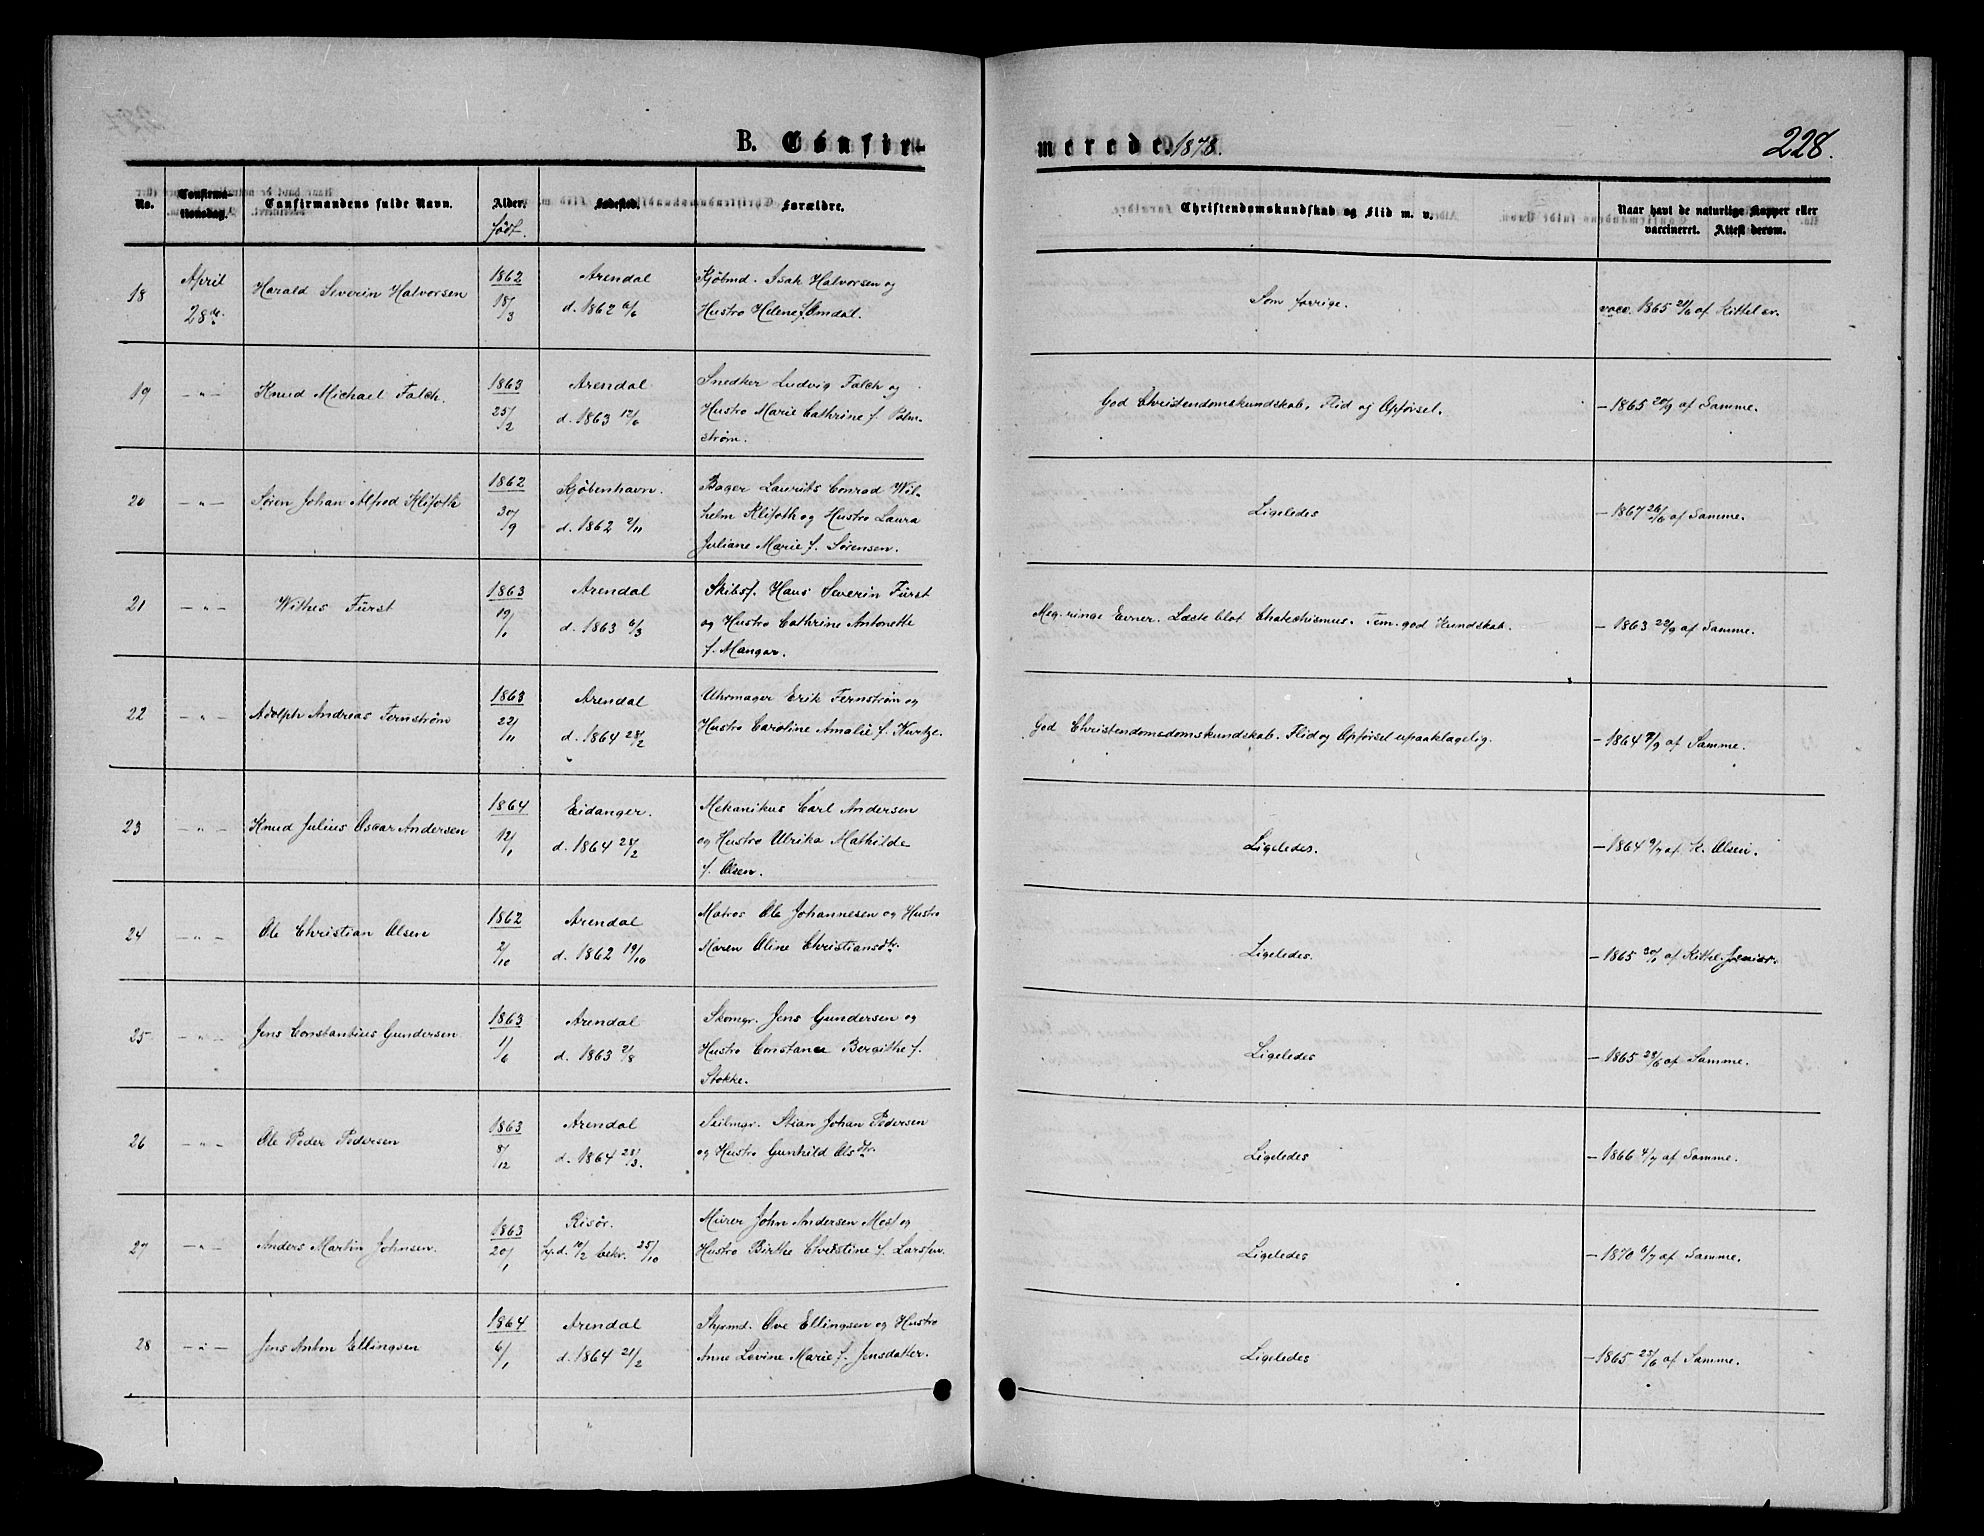 B. Confir-
merede. 1878.
228.
No.
Confirma-
tionsdag.
Confirmandens fulde Navn.
Alder.
født.
Fødested.
Forældre.
Christendomskundskab og Flid m. v.
Naar havt de naturlige Kopper eller
vaccineret. Attest derom.
18
April
28de
Harald Severin Halvorsen
1862
18/3
Arendal
d. 1862 6/6
Kjöbmd. Isak Halvorsen og
Hustro Helene f. Omdal.
Som forrige.
vacc. 1865 21/6 af Kittelsr.
19
— " —
Knud Michael Falch.
1863
25/2
Arendal
d. 1863 17/6
Snedker Ludvig Falch og
Hustro Marie Cathrine f. Palm-
strøm.
God Christendomskundskab, Flid og Opførsel.
— 1865 20/9 af Samme.
20
— " —
Søren Johan Alfred Klifoth
1862
30/9
Kjøbenhavn.
d. 1862 2/11
Bager Laurits Conrad Wil-
helm Klifoth og Hustro Laura
Juliane Marie f. Sørensen.
Ligeledes
— 1867 26/6 af Samme.
21
— " —
Withes Fürst
1863
19/1
Arendal
d. 1863 6/3
Skibsf. Hans Severin Fürst
og Hustro Cathrine Antonette
f. Mangor.
Meg. ringe Evner. Læste blot Chatechismus. Tem. god Kundskab.
— 1863 22/9 af Samme.
22
— " —
Adolph Andreas Fernstrøm
1863
22/11
Arendal
d. 1864 28/2
Uhrmager Erik Fernstrøm og
Hustro Caroline Amalie f. Kurtze.
God Christendomsdomskundskab. Flid og Opførsel upaaklagelig.
— 1864 7/9 af Samme.
23
— " —
Knud Julius Oscar Andersen
1864
12/1
Eidanger.
d. 1864 28/2
Mekanikus Carl Andersen
og Hustro Ulrika Mathilde
f. Olsen.
Ligeledes.
— 1864 9/7 af K. Olsen.
24
— " —
Ole Christian Olsen
1862
2/10
Arendal
d. 1862 19/10
Matros Ole Johannesen og Hustro
Maren Oline Christiansdtr.
Ligeledes.
— 1865 20/1 af Kittel Jsmior.
25
" —
Jens Constantius Gundersen
1863
1/6
Arendal
d. 1863 2/8
Skomgr. Jens Gundersen og
Hustro Constance Bergithe f.
Stokke.
Ligeledes
— 1865 28/6 af Samme.
26
— " —
Ole Peder Pedersen
1863
8/12
Arendal
d. 1864 28/3.
Seilmgr. Stian Johan Pedersen
og Hustro Gunhild Olsdtr.
Ligeledes
— 1866 4/7 af Samme.
27
— " —
Anders Martin Johnsen.
1863
20/1
Risør.
hj. d. 10/2 bekr. 25/10
Murer John Andersen Mest og
Hustro Birthe Christine f. Larsen.
Ligeledes
— 1870 6/7 af Samme.
28
— " —
Jens Anton Ellingsen
1864
6/1
Arendal
d. 1864 21/2
Styrmd. Ove Ellingsen og Hustro
Anne Levine Marie f. Jensdatter.
Ligeledes
— 1865 23/6 af Samme.